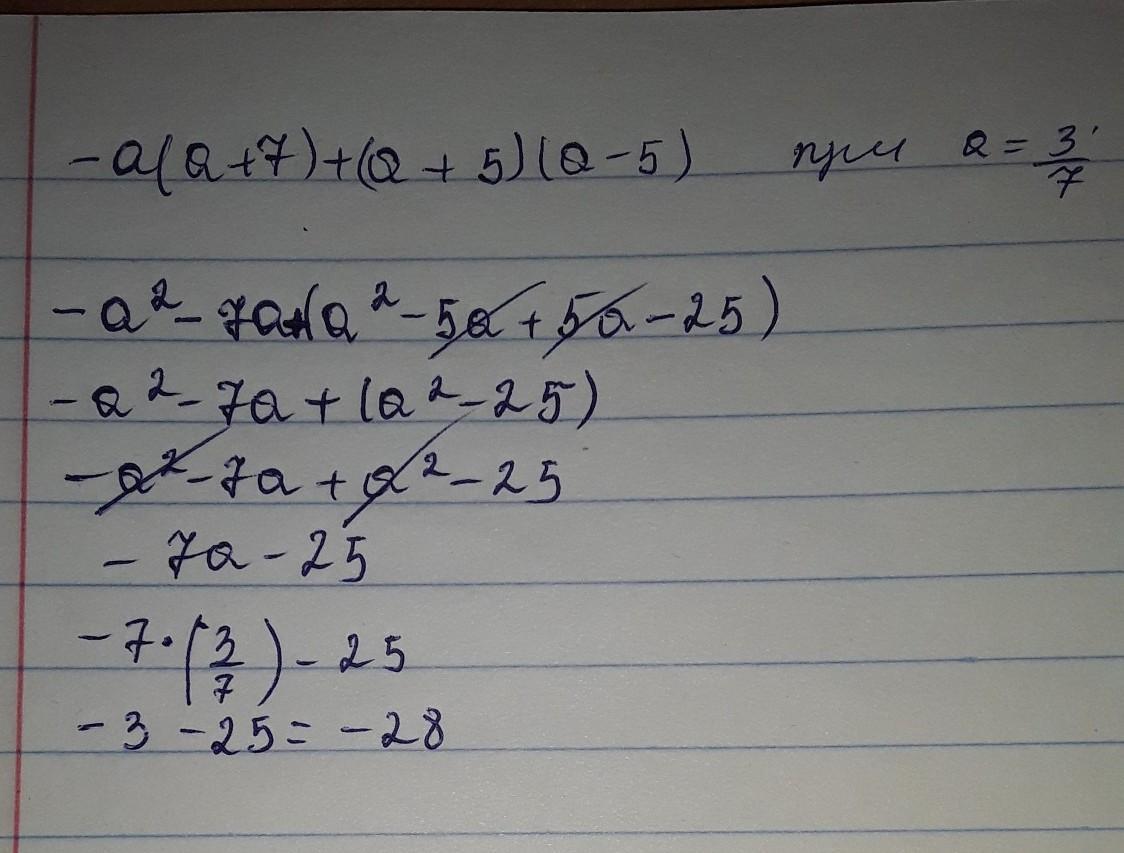 -a(a+7)+(a+5)(a-5) при a = 3/7
-a²-7a+(a²-5a+5a-25)
-a²-7a+(a²-25)
-a²-7a+a²-25
-7a-25
-7·(3/7)-25
-3-25=-28